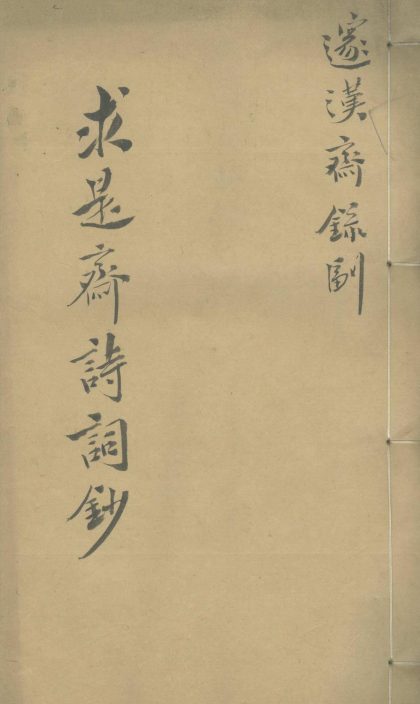 邃漢齋錄副
求是齋詩詞鈔